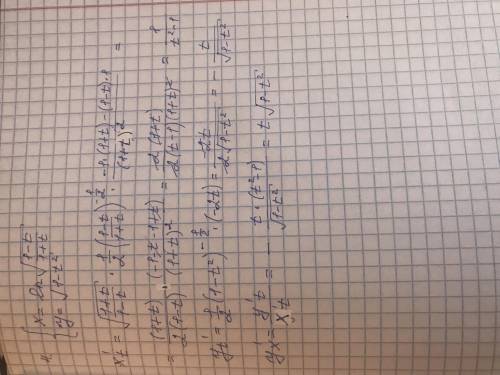 4. { x = ln √((1-t)/(1+t))
y = √(1-t²)
x't = √((1+t)/(1-t)) · 1/2 ((1-t)/(1+t))^(-1/2) · (-1·(1+t) - (1-t)·1)/(1+t)² =
= (1+t)/(2(1-t)) · (-1-t-1+t)/(1+t)² = -2(1+t)/(2(1-t)(1+t)²) = 1/(t²-1)
y't = 1/2 (1-t²)^(-1/2) · (-2t) = -2t/(2√(1-t²)) = - t/√(1-t²)
y'x = y't/x't = - t·(t²-1)/√(1-t²) = t√(1-t²)